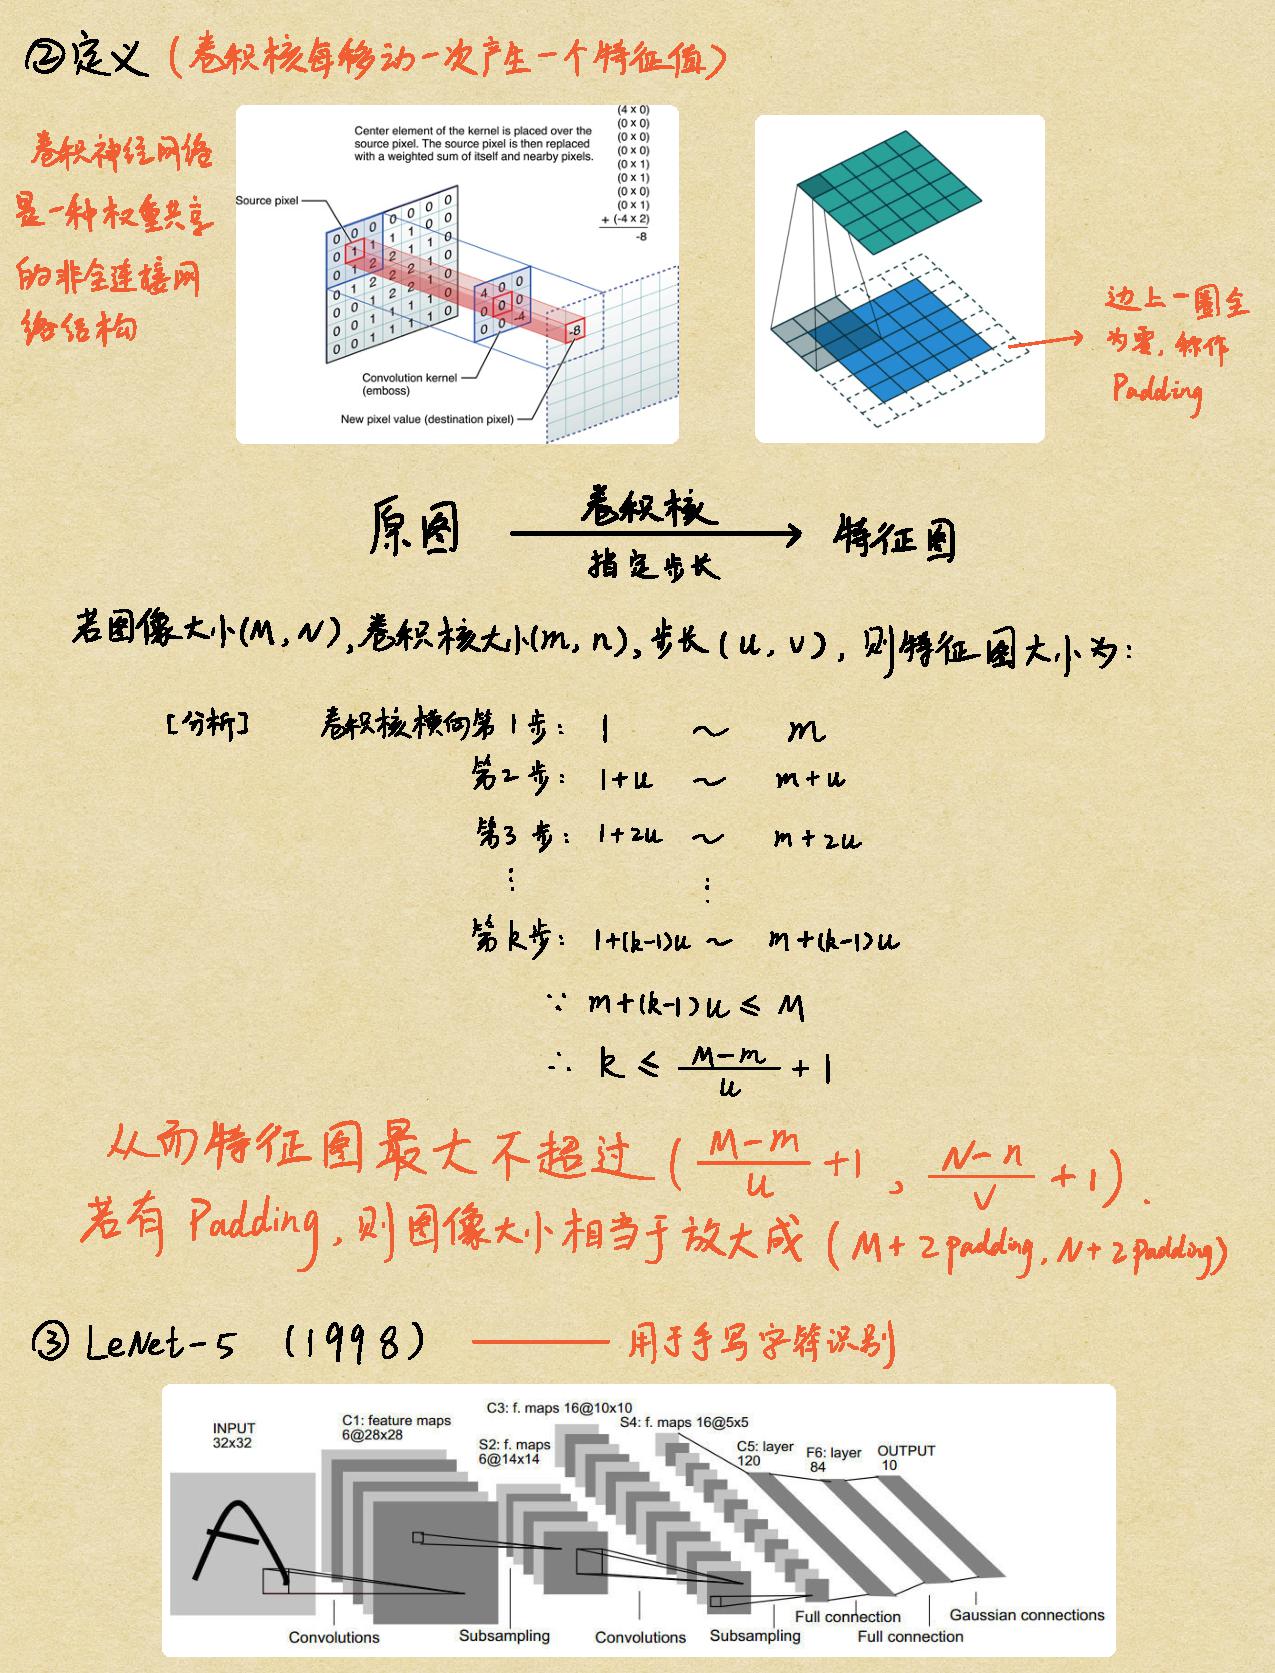 ②定义（卷积核每移动一次产生一个特征值）
卷积神经网络
是一种权重共享
的非全连接网
络结构
Center element of the kernel is placed over the
source pixel. The source pixel is then replaced
with a weighted sum of itself and nearby pixels.
(4 x 0)
(0 x 0)
(0 x 0)
(0 x 0)
(0 x 1)
(0 x 1)
(0 x 0)
(0 x 1)
+ (-4 x 2)
-8
Source pixel
4 0 0
0 0 0
0 0 -4
-8
Convolution kernel
(emboss)
New pixel value (destination pixel)
边上一圈全
为零，称作
Padding
原图 卷积核 特征图
指定步长
若图像大小(M, N), 卷积核大小(m, n), 步长(u, v), 则特征图大小为:
[分析] 卷积核横向第1步: 1 ～ m
第2步: 1+u ～ m+u
第3步: 1+2u ～ m+2u
⋮ ⋮
第k步: 1+(k-1)u ～ m+(k-1)u
∵ m+(k-1)u ≤ M
∴ k ≤ (M-m)/u + 1
从而特征图最大不超过 ( (M-m)/u +1 , (N-n)/v +1 ).
若有 Padding, 则图像大小相当于放大成 (M+2padding, N+2padding)
③ LeNet-5 (1998) —— 用于手写字符识别
INPUT
32x32
C1: feature maps
6@28x28
S2: f. maps
6@14x14
C3: f. maps 16@10x10
S4: f. maps 16@5x5
C5: layer
120
F6: layer
84
OUTPUT
10
A
Convolutions
Subsampling
Convolutions
Subsampling
Full connection
Full connection
Gaussian connections